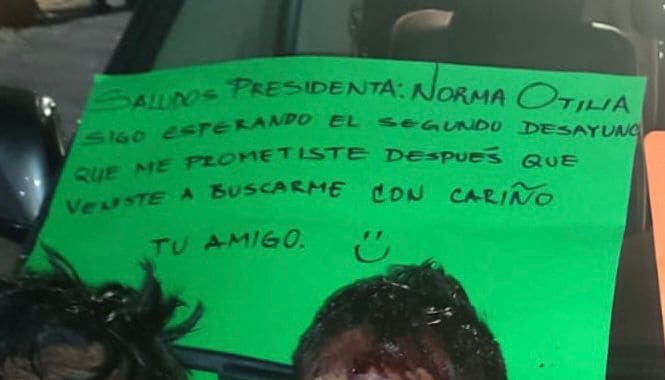 SALUDOS PRESIDENTA: NORMA OTILIA
SIGO ESPERANDO EL SEGUNDO DESAYUNO
QUE ME PROMETISTE DESPUÉS QUE
VENISTE A BUSCARME CON CARIÑO
TU AMIGO.